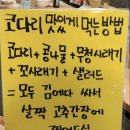 코다리 맛있게 먹는방법
코다리+콩나물+무청시래기
+꼬시래기+샐러드
= 모두 김에다 싸서
살짝 고추간장에